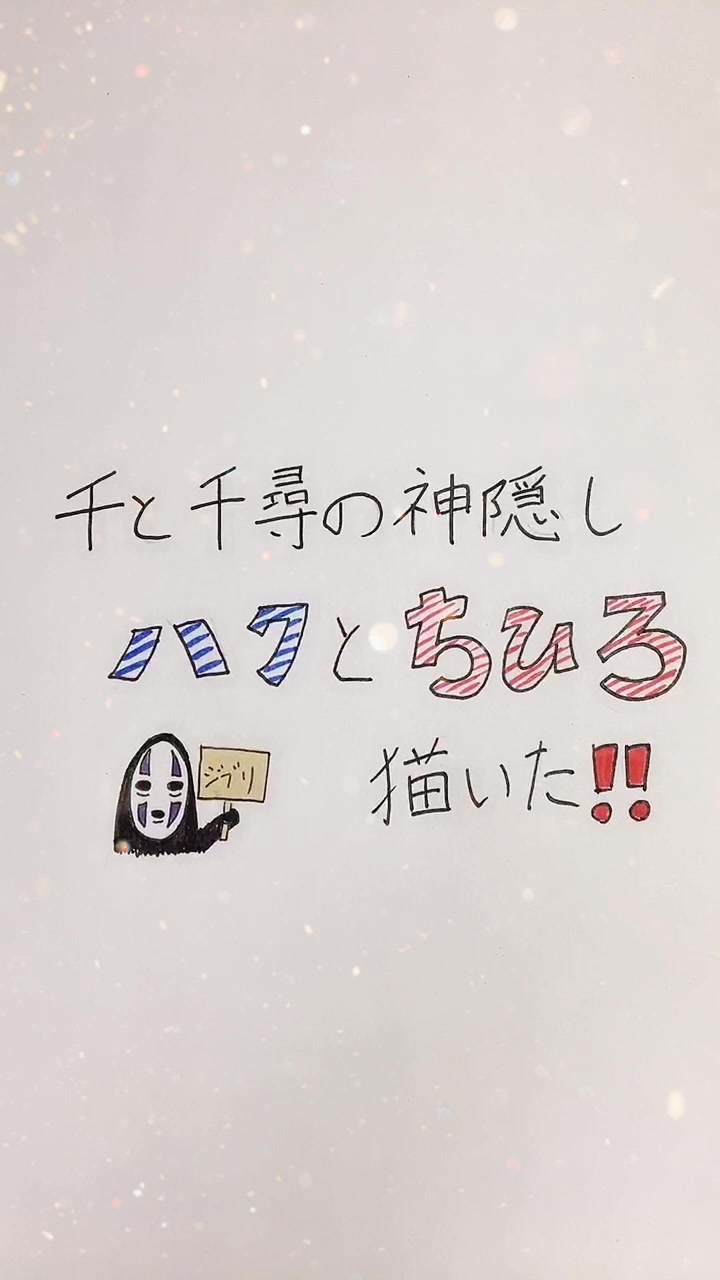 千と千尋の神隠し
ハクとちひろ
ジブリ
描いた!!